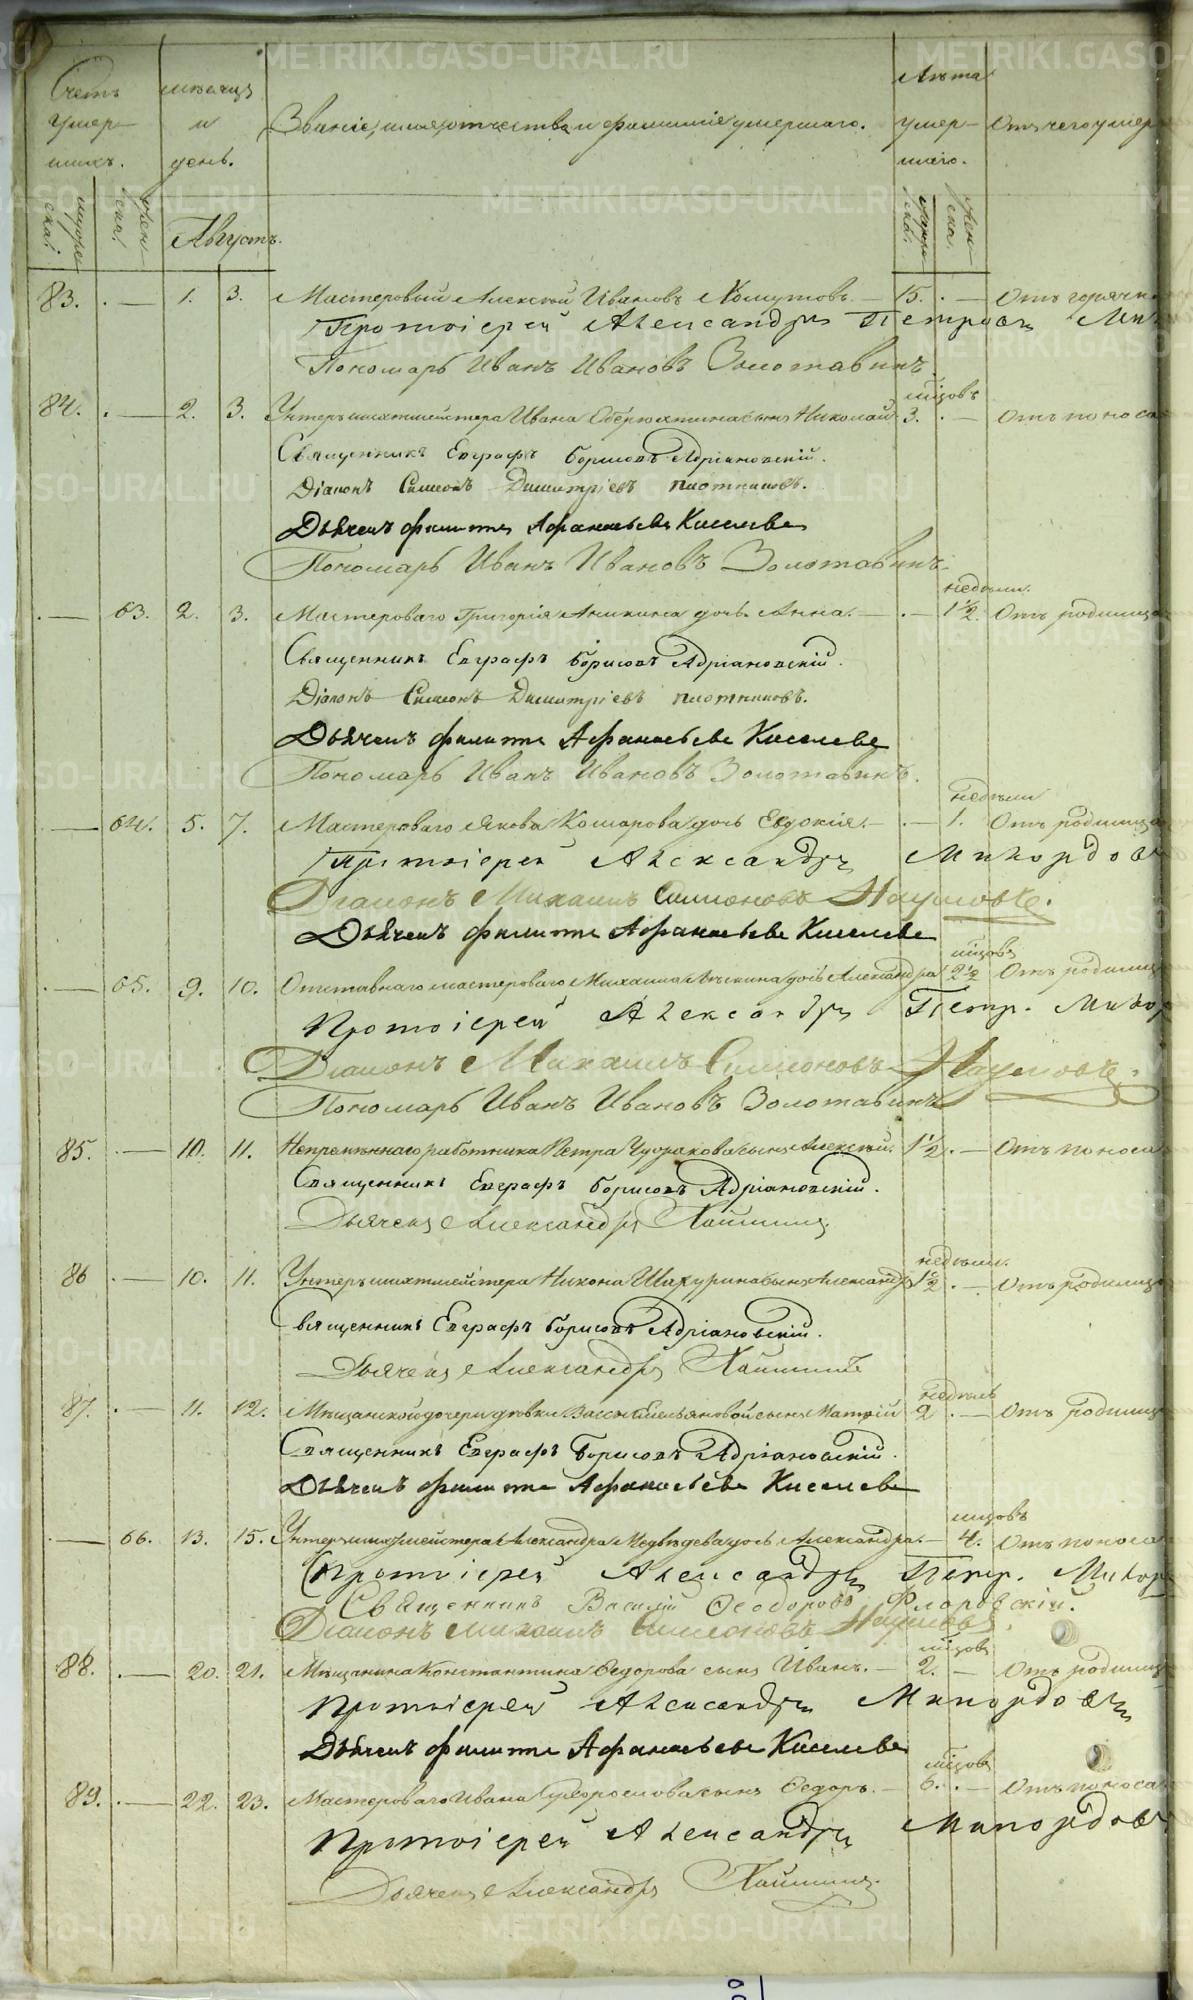 Счетъ умер-шихъ.
мужеска:
женска:
мѣсяцъ и день.
Августъ.
Званіе, имя, отчество и фамилія умершаго.
Лѣта умер-шаго.
мужеск:
женска.
Отъ чего умер
83. 1. 3. Мастеровый Алексѣй Ивановъ Хомутовъ. 15. Отъ горячк
Протоіерей Александръ Петровъ Ми
Пономарь Иванъ Ивановъ Золотавинъ
мѣсяцовъ
84. 2. 3. Унтершихтмейстера Ивана Обѣрюхтина сынъ Николай 3. Отъ поноса
Священникъ Евграфъ Борисовъ Адріановскій.
Діаконъ Симеонъ Димитріевъ Плотниковъ.
Дьячекъ Филиппъ Афанасьевъ Киселевъ
Пономарь Иванъ Ивановъ Золотавинъ
недѣли
63. 2. 3. Мастероваго Григорія Аникина дочь Анна. 1 1/2. Отъ родимца
Священникъ Евграфъ Борисовъ Адріановскій.
Діаконъ Симеонъ Димитріевъ Плотниковъ.
Дьячекъ Филиппъ Афанасьевъ Киселевъ
Пономарь Иванъ Ивановъ Золотавинъ.
недѣли
64. 5. 7. Мастероваго Якова Комарова дочь Евдокія. 1. Отъ родимца
Протоіерей Александръ Микордов
Діаконъ Михаилъ Симеоновъ Наумовъ.
Дьячекъ Филиппъ Афанасьевъ Киселевъ
мѣсяцовъ
65. 9. 10. Отставнаго мастероваго Михаила дочь Александра 2 1/2 Отъ родимц
Протоіерей Александръ Петр. Микор
Діаконъ Михаилъ Симеоновъ Наумовъ.
Пономарь Иванъ Ивановъ Золотавинъ
85. 10. 11. Непремѣннаго работника Петра Чуракова сынъ Алексѣй. 1 1/2 Отъ поноса
Священникъ Евграфъ Борисовъ Адріановскій.
Дьячекъ Александръ
недѣли.
86 10. 11. Унтершихтмейстера Никона Шахурина сынъ Александръ 1 1/2 Отъ родимца
Священникъ Евграфъ Борисовъ Адріановскій.
Дьячекъ Александръ
недѣль
87. 11. 12. Мѣщанской дочери дѣвки Вассы Емельяновой сынъ Матвій 2 Отъ родимц
Священникъ Евграфъ Борисовъ Адріановскій.
Дьячекъ Филиппъ Афанасьевъ Киселевъ
мѣсяцовъ
66. 13. 15. Унтершихтмейстера Александра Медвѣдева дочь Александра. 4. Отъ поноса
Протоіерей Александръ Петр. Микор
Священникъ Василій Ѳеодоровъ Флоровскій.
Діаконъ Михаилъ Симеоновъ Наумовъ.
мѣсяцовъ
88. 20. 21. Мѣщанина Константина Ѳедорова сынъ Иванъ. 2. Отъ родимц
Протоіерей Александръ Микордовъ
Дьячекъ Филиппъ Афанасьевъ Киселевъ
мѣсяцовъ
89. 22. 23. Мастероваго Ивана сынъ Ѳедоръ. 6. Отъ поноса
Протоіерей Александръ Микордовъ
Дьячекъ Александръ
METRIKI.GASO-URAL.RU